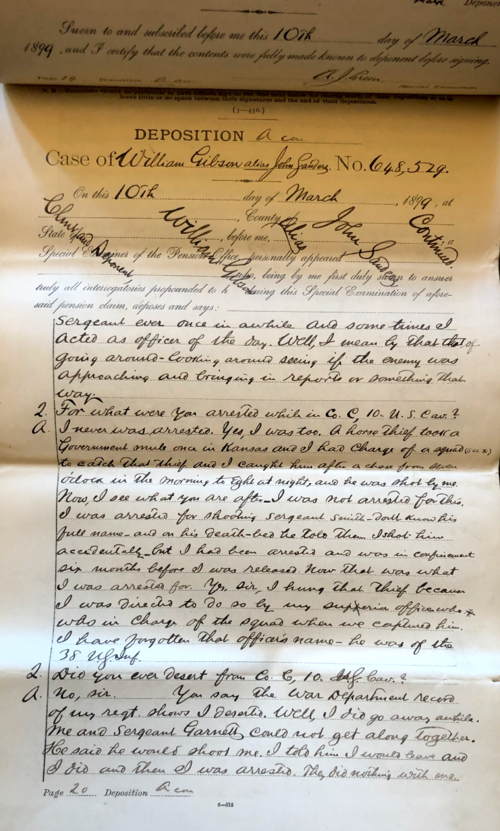 Sworn to and subscribed before me this 10th day of March
1899, and I certify that the contents were fully made known to deponent before signing.
[3—456.]
DEPOSITION A con
Case of William Gibson alias John Sanders, No. 648,529.
On this 10th day of March, 1899, at
, County of
State of , before me, , a
Special Examiner of the Pension Office, personally appeared
William Gibson alias John Sanders Continued.
Claimant Deponent
, who, being by me first duly sworn to answer
truly all interrogatories propounded to h during this Special Examination of afore-
said pension claim, deposes and says:
Sergeant ever once in awhile and some times I
acted as officer of the day. Well, I mean by that that of
going around—looking around seeing if the enemy was
approaching and bringing in reports or something that
way.
Q. For what were you arrested while in Co. C, 10. U.S. Cav.?
A. I never was arrested. Yes, I was too. A horse thief took a
Government mule once in Kansas and I had charge of a squad
to catch that thief and I caught him after a chase from
o'clock in the morning to Eght at night, and he was shot by me.
Now, I see what you are after—I was not arrested for this.
I was arrested for shooting Sergeant Smith—dont know his
full name—and on his death-bed he told them I shot him
accidentally—but I had been arrested and was in confinement
six months before I was released. Now that was what
I was arrested for. Yes, sir, I hung that thief because
I was directed to do so by my superior officer who
was in charge of the squad when we captured him.
I have forgotten that officer's name—he was of the
38 U.S. Inf.
Q. Did you ever desert from Co. C, 10. U.S. Cav.?
A. No, sir. You say the War Department record
of my regt. shows I deserted. Well, I did go away awhile.
Me and Sergeant Garnett could not get along together.
He said he would shoot me. I told him I would leave and
I did and then I was arrested. They did nothing with me
Page 20 Deposition A con